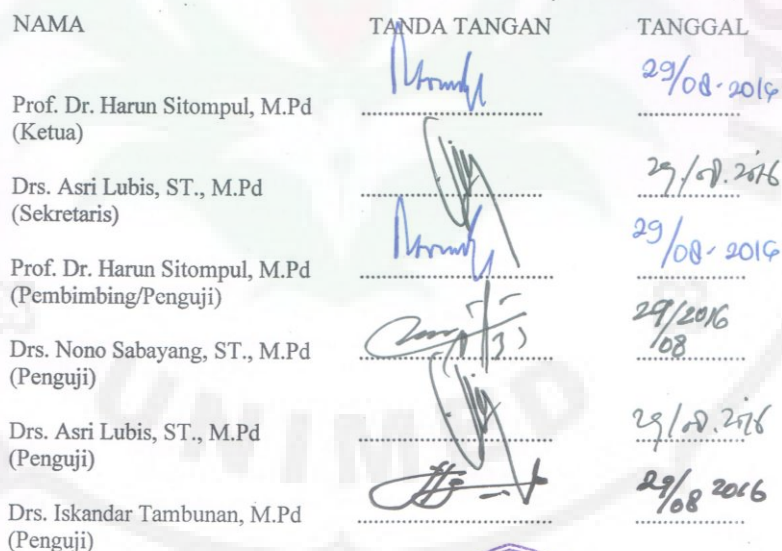 NAMA TANDA TANGAN TANGGAL
29/08-2016
Prof. Dr. Harun Sitompul, M.Pd ..............................
(Ketua)
29/08.2016
Drs. Asri Lubis, ST., M.Pd ..............................
(Sekretaris)
29/08-2016
Prof. Dr. Harun Sitompul, M.Pd ..............................
(Pembimbing/Penguji)
29/2016
08
Drs. Nono Sabayang, ST., M.Pd ..............................
(Penguji)
29/08.2016
Drs. Asri Lubis, ST., M.Pd ..............................
(Penguji)
29/08 2016
Drs. Iskandar Tambunan, M.Pd ..............................
(Penguji)
UNIMED